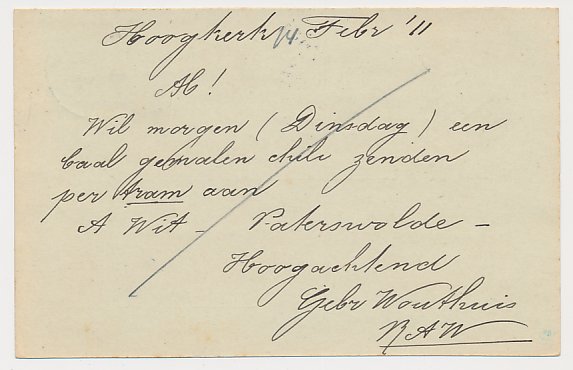 Hoogkerk 14 Febr '11
Ab!
Wil morgen (Dinsdag) een
baal gemalen chili zenden
per tram aan
A Wit - Paterswolde -
Hoogachtend
Gebr Wouthuis
RAW